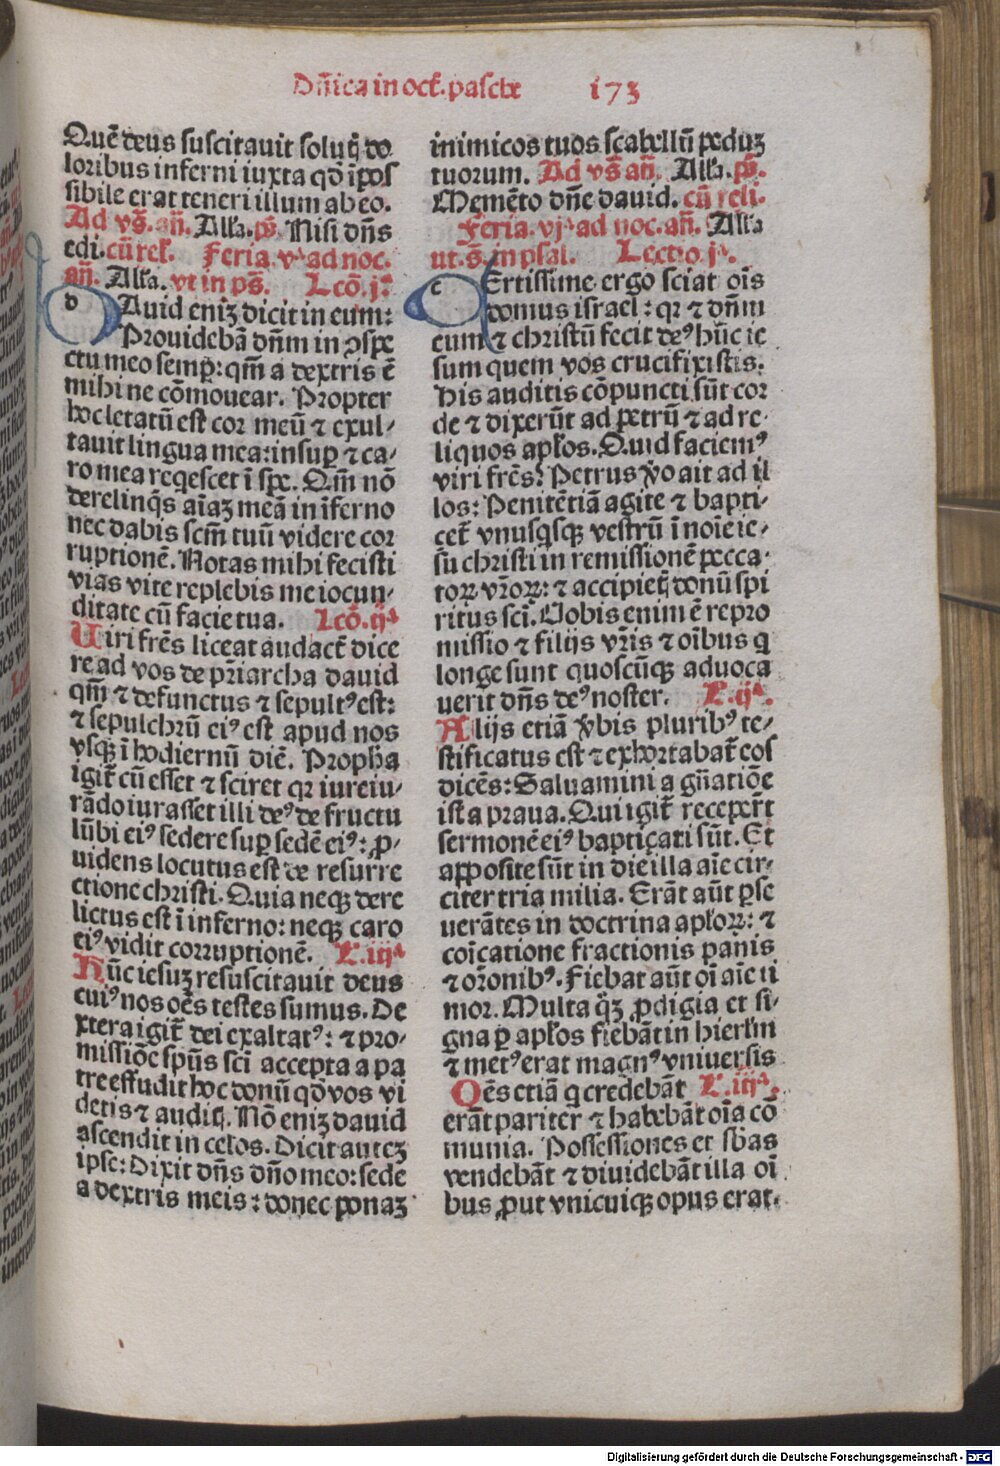 Dñica in oct̃. pasche 173
Quẽ deus suscitauit solutꝭ do
loribus inferni iuxta qđ ĩpos
sibile erat teneri illum ab eo.
Ad vs̃. añ. Alła. p̃s. Nisi dñs
edi. cũ rel̃. Feria. vᵃ ad noc.
añ. Alła. vt in ps̃. Lcõ. jᵃ.
DAuid eniʒ dicit in eum:
Prouidebã dñm in ꝯspe
ctu meo semꝑ: qm̃ a dextris ẽ
mihi ne cõmouear. Propter
hoc letatũ est cor meũ ⁊ exul⸗
tauit lingua mea: insuꝑ ⁊ ca⸗
ro mea reqescet ĩ spe. Qm̃ nõ
derelinq̃s aĩaʒ meã in ĩferno
nec dabis scm̃ tuũ videre cor
ruptionẽ. Notas mihi fecisti
vias vite replebis me iocun⸗
ditate cũ facie tua. Lcõ. ijᵃ
Uiri frẽs liceat audact̃ dice
re ad vos de pr̃iarcha dauid
qm̃ ⁊ defunctus ⁊ sepultꝰ est:
⁊ sepulchrũ eiꝰ est apud nos
vsqʒ ĩ hodiernũ diẽ. Propħa
igit̃ cũ esset ⁊ sciret qꝛ iureiu⸗
rãdo iurasset illi deꝰ de fructu
lũbi eiꝰ sedere suꝑ sedẽ eiꝰ: ꝓ⸗
uidens locutus est de resurre
ctione christi. Quia neqʒ dere
lictus est ĩ inferno: neqʒ caro
eiꝰ vidit corruptionẽ. L. iijᵃ
Hũc iesuʒ resuscitauit deus
cuiꝰ nos oẽs testes sumus. De
xtera igit̃ dei exaltatꝰ: ⁊ pro⸗
missiõe spũs sc̃i accepta a pa
tre effudit hoc donũ qđ vos vi
detis ⁊ auditꝭ. Nõ eniʒ dauid
ascendit in celos. Dicit auteʒ
ipse: Dixit dñs dño meo: sede
a dextris meis: donec ponaʒ
inimicos tuos scabellũ peduʒ
tuorum. Ad vs̃ añ. Alła. p̃s.
Memẽto dñe dauid. cũ reli.
Feria. vjᵃ ad noc. añ. Alła
ut. s̃. in psal. Lectio. jᵃ.
cErtissime ergo sciat oĩs
domus israel: qꝛ ⁊ dñm
eum ⁊ christũ fecit deꝰ hũc ie
sum quem vos crucifixistis.
His auditis cõpuncti sũt cor
de ⁊ dixerũt ad petrũ ⁊ ad re⸗
liquos apłos. Quid faciemꝰ
viri frẽs? Petrus ṽo ait ad il
los: Penitẽtiã agite ⁊ bapti⸗
cet̃ vnusqsqʒ vestrũ ĩ noĩe ie⸗
su christi in remissionẽ pecca⸗
toꝝ vr̃oꝝ: ⁊ accipietꝭ donũ spi
ritus sc̃i. Uobis enim ẽ repro
missio ⁊ filijs vr̃is ⁊ oĩbus q
longe sunt quoscũqʒ aduoca
uerit dñs deꝰ noster. L. ijᵃ.
Alijs etiã ṽbis pluribꝰ te⸗
stificatus est ⁊ exhortabat̃ eos
dicẽs: Saluamini a gñatiõe
ista praua. Qui igit̃ receper̃t
sermonẽ eiꝰ baptiçati sũt. Et
apposite sũt in die illa aĩe cir⸗
citer tria milia. Erãt aũt ꝑse
uerãtes in doctrina apłoꝝ: ⁊
coĩcatione fractionis panis
⁊ or̃onibꝰ. Fiebat aũt oĩ aĩe ti
mor. Multa q̃ʒ ꝓdigia et si⸗
gna ꝑ apłos fiebãt in hierłm
⁊ metꝰ erat magnꝰ vniuersis
Oẽs etiã q credebãt L. iijᵃ.
erãt pariter ⁊ habebãt oĩa cõ
munia. Possessiones et sb̃as
vendebãt ⁊ diuidebãt illa oĩ
bus ꝓut vnicuiqʒ opus erat.
Digitalisierung gefördert durch die Deutsche Forschungsgemeinschaft - DFG